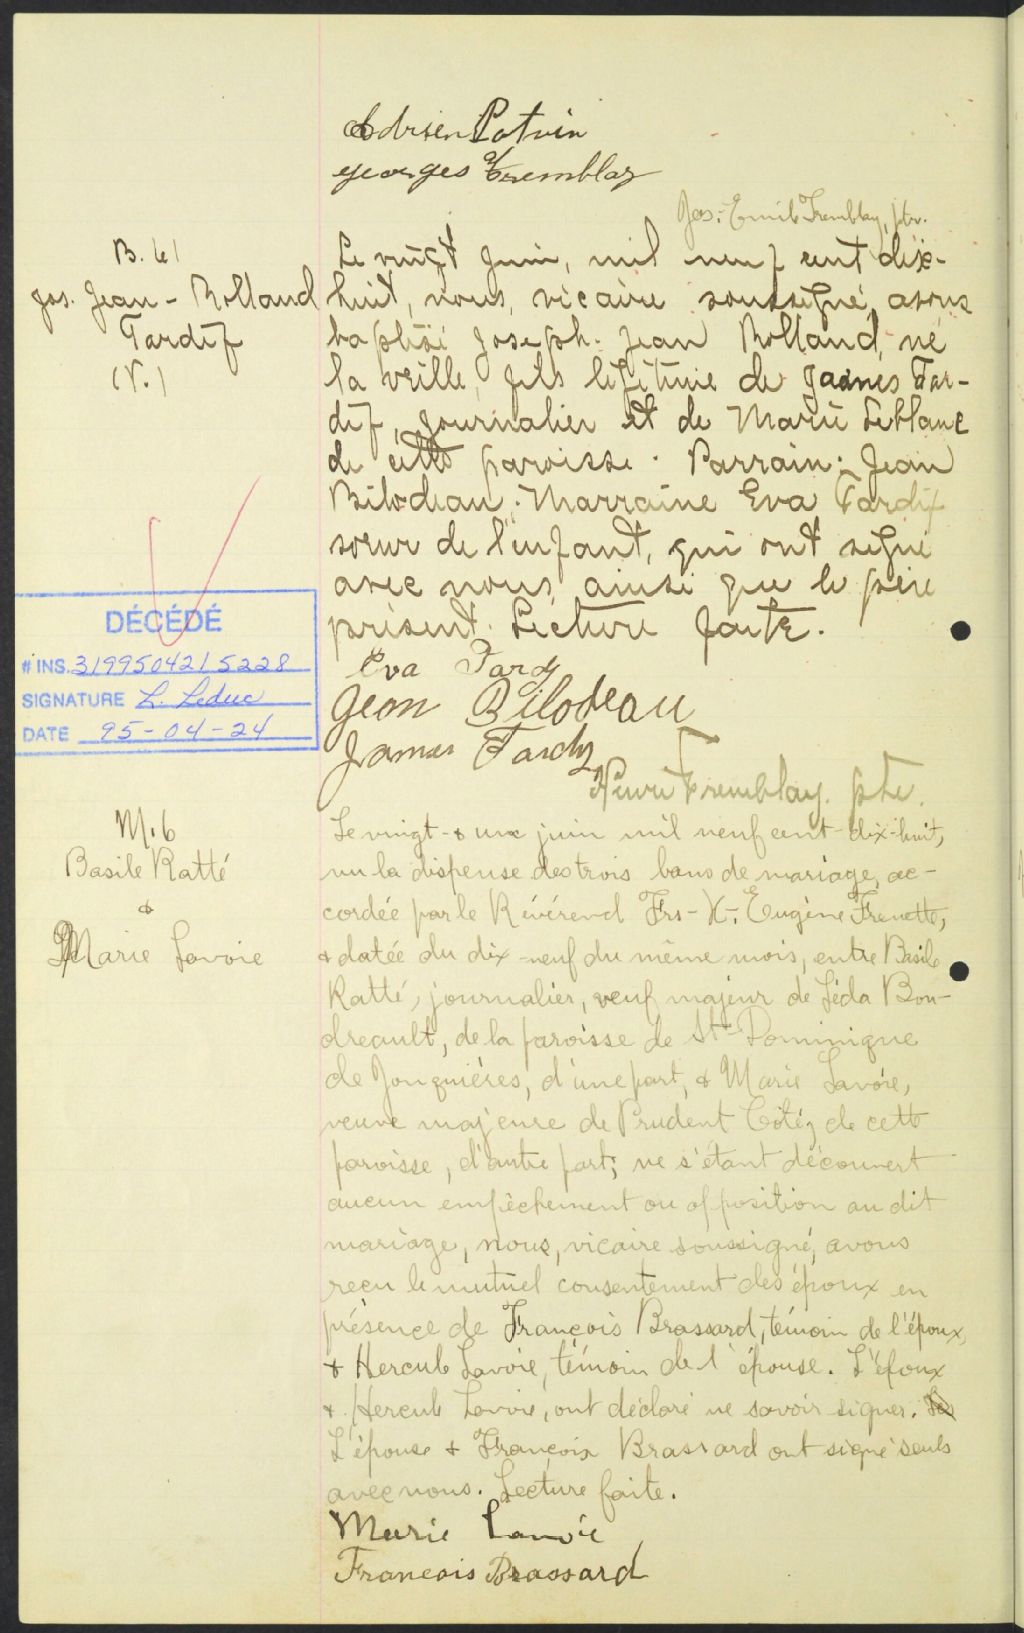 Adrien Potvin
georges Tremblay
Jos.-Emile Tremblay, ptr.
B. 61
Jos. Jean-Rolland
Tardif
(V.)
Le vingt Juin, mil neuf cent dix-
huit, nous, vicaire soussigné, avons
baptisé Joseph-Jean Rolland, né
la veille, fils légitime de James Tar-
dif, journalier et de Marie Leblanc
de cette paroisse. Parrain: Jean
Bilodeau; Marraine Eva Tardif
soeur de l'enfant, qui ont signé
avec nous ainsi que le père
présent. Lecture faite.
DÉCÉDÉ
# INS. 3199504215228
SIGNATURE L. Leduc
DATE 95-04-24
Eva Tardif
Jean Bilodeau
James Tardif
Henri Tremblay. ptre.
M. 6
Basile Ratté
&
Marie Lavoie
Le vingt-&-une juin mil neuf cent-dix-huit,
vu la dispense des trois bans de mariage, ac-
cordée par le Révérend Frs-X-Eugène Frenette,
& datée du dix-neuf du même mois, entre Basile
Ratté, journalier, veuf majeur de Léda Bou-
dreault, de la paroisse de St-Dominique
de Jonquières, d'une part, & Marie Lavoie,
veuve majeure de Prudent Côté, de cette
paroisse, d'autre part; ne s'étant découvert
aucun empêchement ou opposition au dit
mariage, nous, vicaire soussigné, avons
reçu le mutuel consentement des époux en
présence de François Brassard, témoin de l'époux,
& Hercule Lavoie, témoin de l'épouse. L'époux
& Hercule Lavoie, ont déclaré ne savoir signer.
L'épouse & François Brassard ont signé seuls
avec nous. Lecture faite.
Marie Lavoie
Francois Brassard